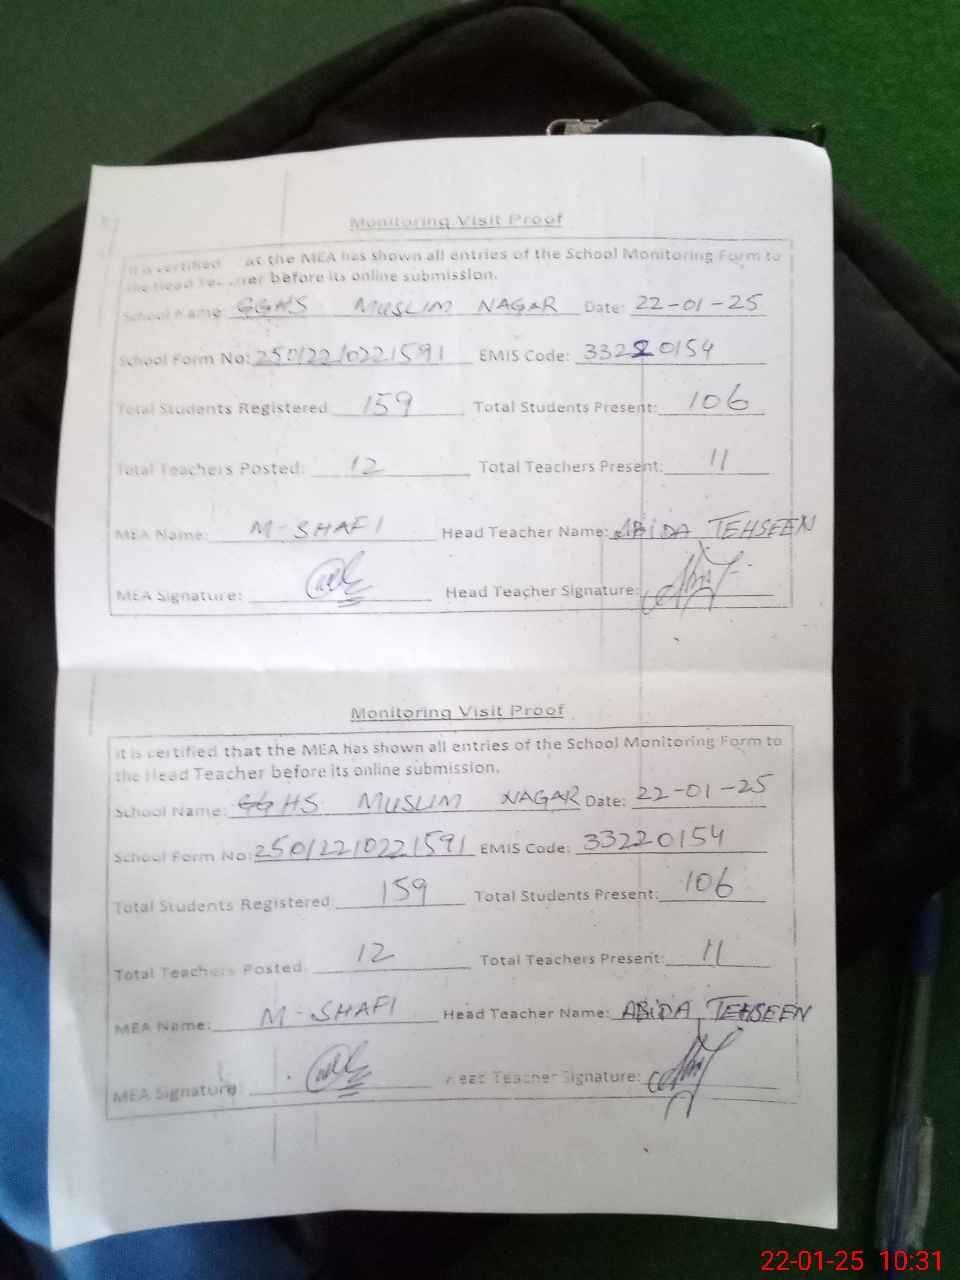 Monitoring Visit Proof
It is certified at the MEA has shown all entries of the School Monitoring Form to
the Head before its online submission.
School Name: GGHS MUSLIM NAGAR Date: 22-01-25
School Form No: 25012210221591 EMIS Code: 33220154
Total Students Registered 159 Total Students Present: 106
Total Teachers Posted: 12 Total Teachers Present: 11
MEA Name: M-SHAFI Head Teacher Name: ABIDA TEHSEEN
MEA Signature: Head Teacher Signature:
Monitoring Visit Proof
It is certified that the MEA has shown all entries of the School Monitoring Form to
the Head Teacher before its online submission.
School Name: GGHS MUSLIM NAGAR Date: 22-01-25
School Form No: 25012210221591 EMIS Code: 33220154
Total Students Registered 159 Total Students Present: 106
Total Teachers Posted 12 Total Teachers Present: 11
MEA Name: M-SHAFI Head Teacher Name: ABIDA TEHSEEN
MEA Signature: Head Teacher Signature:
22-01-25 10:31